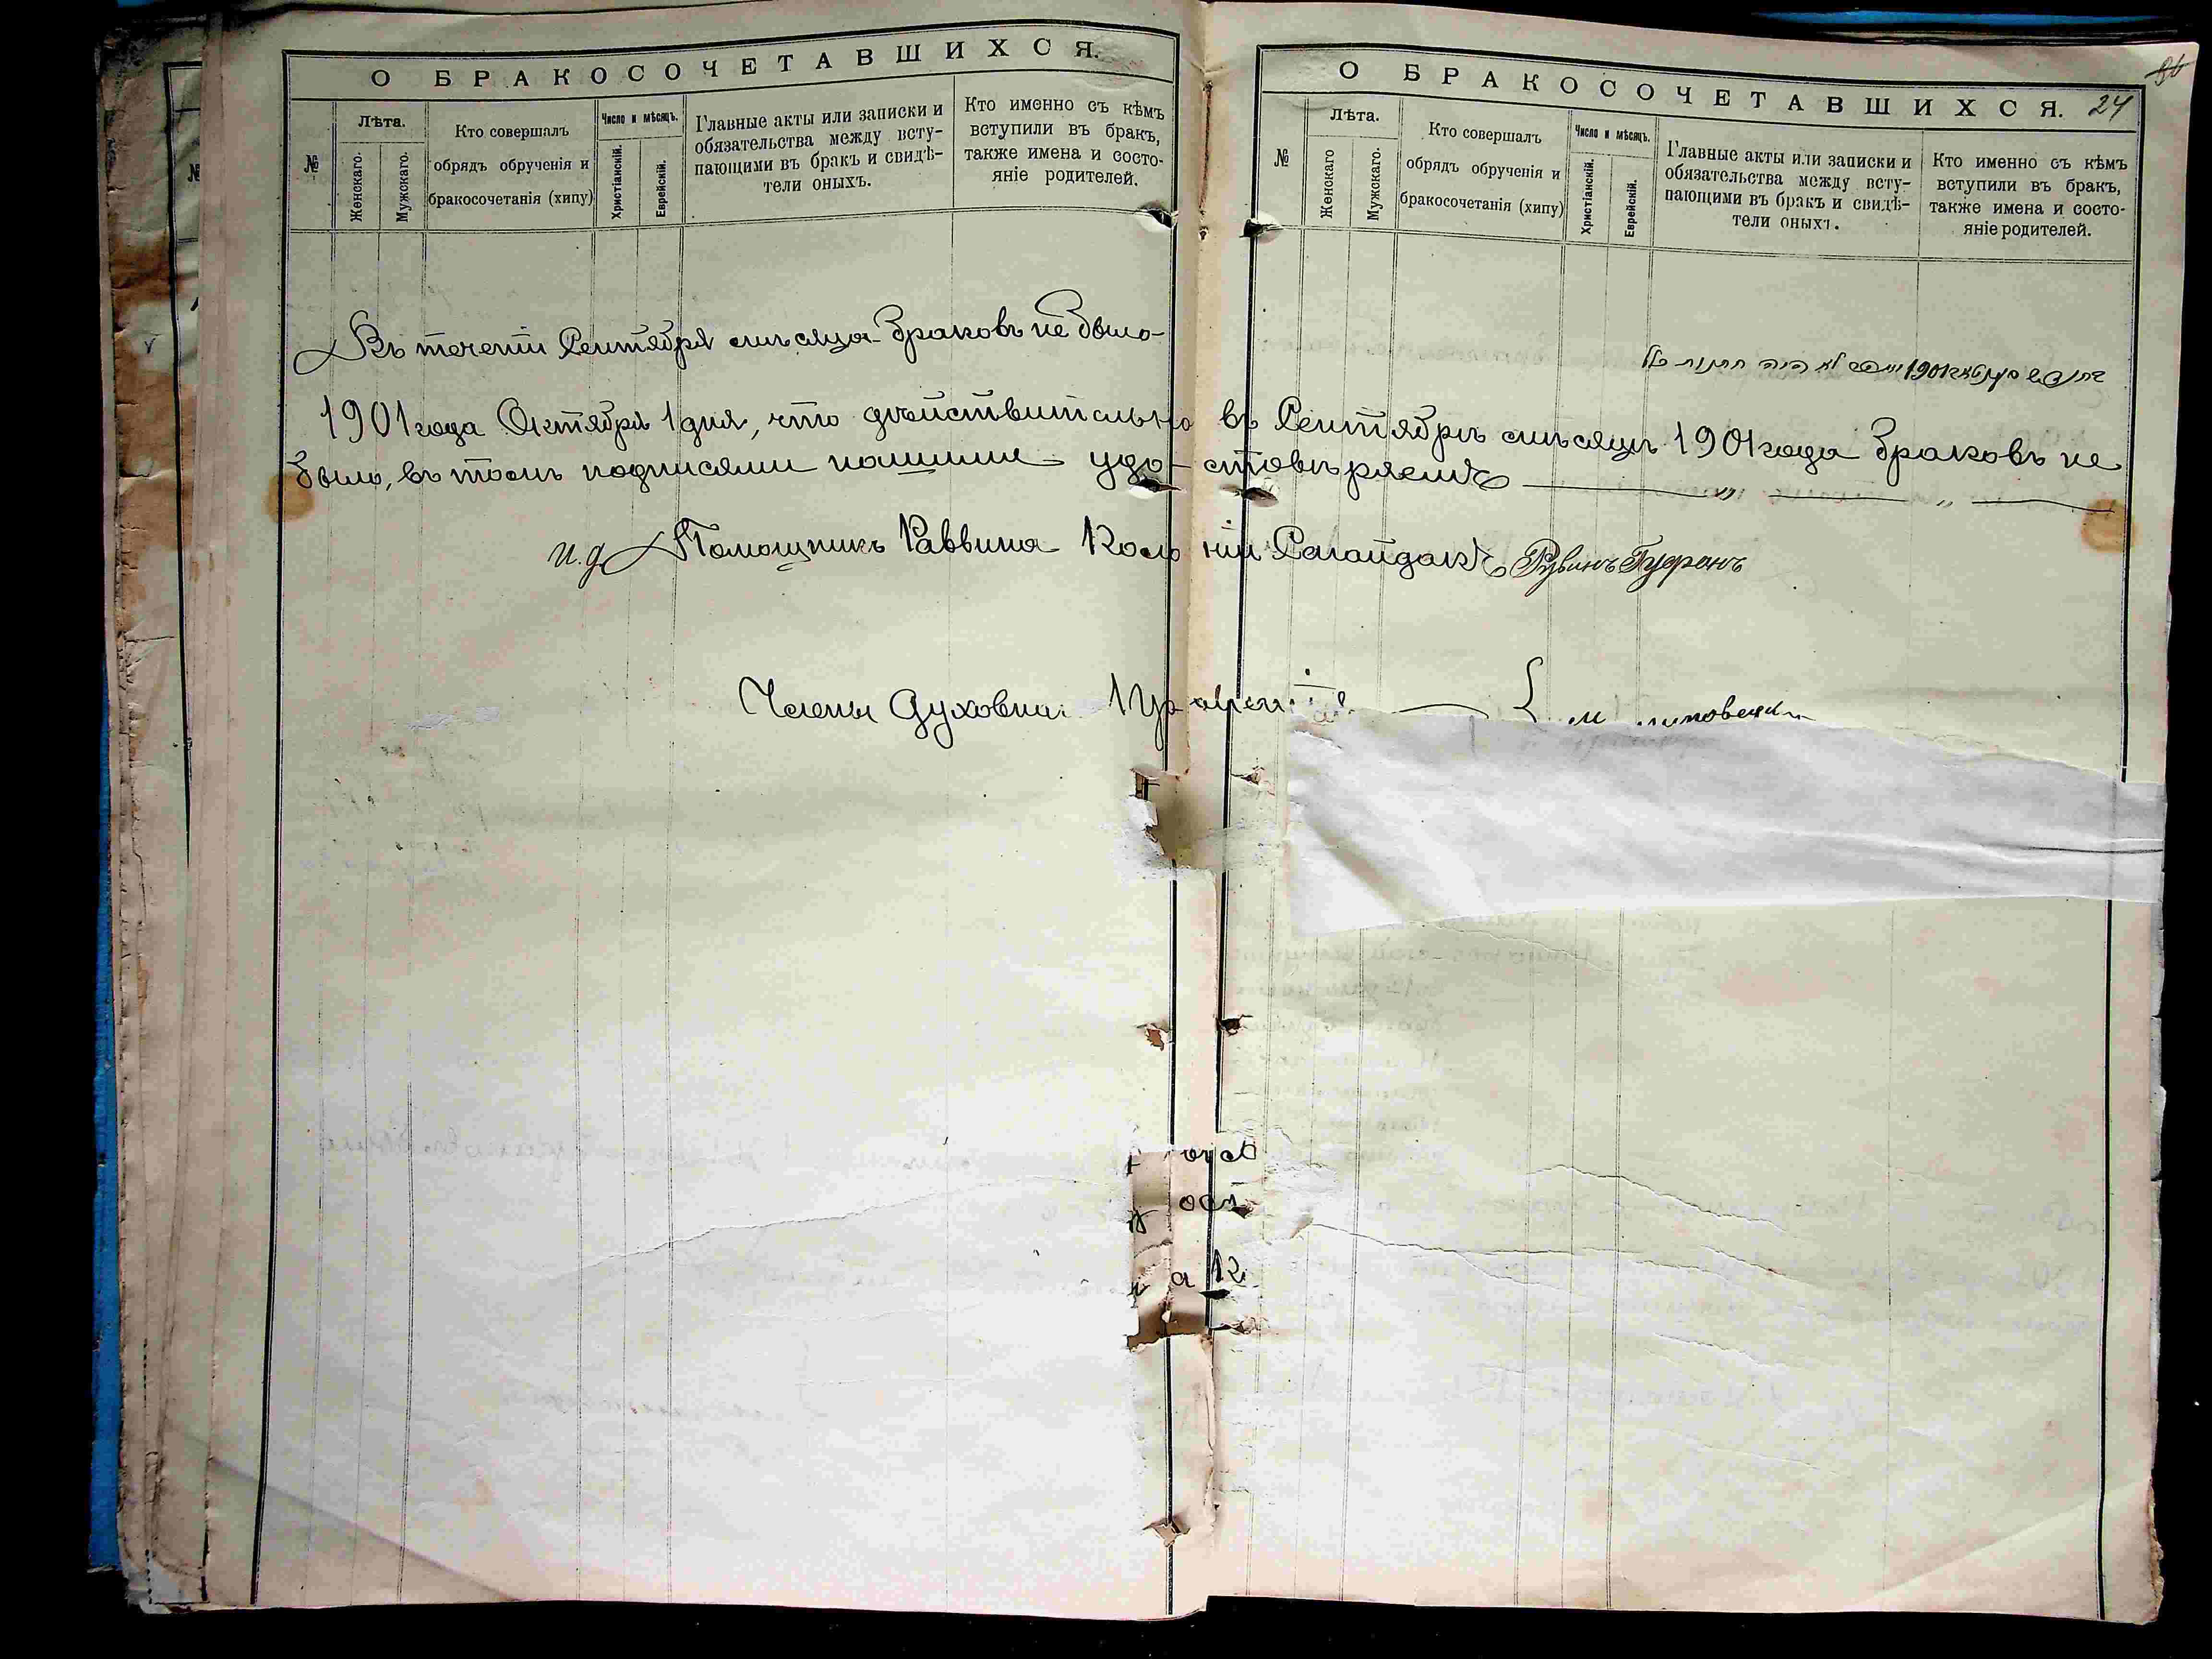 О БРАКОСОЧЕТАВШИХСЯ.
№
Лѣта.
Женскаго.
Мужскаго.
Кто совершалъ
обрядъ обрученія и
бракосочетанія (хипу)
Число и мѣсяцъ.
Христіанскій.
Еврейскій.
Главные акты или записки и
обязательства между всту-
пающими въ бракъ и свидѣ-
тели оныхъ.
Кто именно съ кѣмъ
вступили въ бракъ,
также имена и состо-
яніе родителей.
О БРАКОСОЧЕТАВШИХСЯ. 24
№
Лѣта.
Женскаго
Мужскаго.
Кто совершалъ
обрядъ обрученія и
бракосочетанія (хипу)
Число и мѣсяцъ.
Христіанскій.
Еврейскій.
Главные акты или записки и
обязательства между всту-
пающими въ бракъ и свидѣ-
тели оныхъ.
Кто именно съ кѣмъ
вступили въ бракъ,
также имена и состо-
яніе родителей.
Въ теченіи Сентября мѣсяца браковъ не было
1901 לא היה חתונות
1901 года Октября 1 дня, что дѣйствительно въ Сентябрѣ мѣсяцѣ 1901 года браковъ не
было, въ томъ подписями нашими удо-стовѣряемъ
И. д. Помощникъ Раввина Колоніи Сагайдакъ Рувинъ Гуфранъ
Члены Духовнаго Правленія